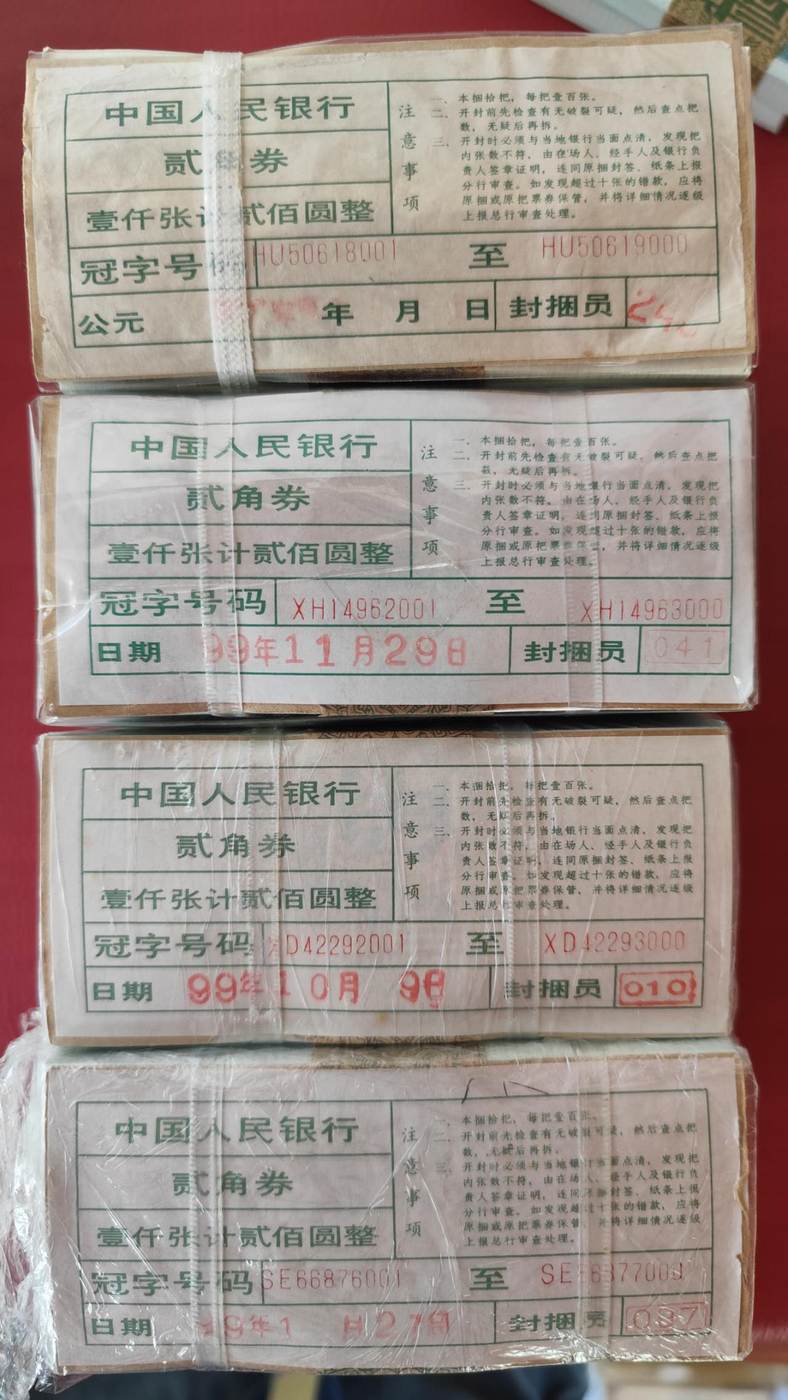 中国人民银行
贰角券
壹仟张计贰佰圆整
冠字号码 HU50618001 至 HU50619000
公元 年 月 日 封捆员
注意事项
一、本捆拾把，每把壹百张。
二、开封前先检查有无破裂可疑，然后查点把
数，无疑后再拆。
三、开封时必须与当地银行当面点清，发现把
内张数不符，由在场人、经手人及银行负
责人签章证明，连同原捆封签、纸条上报
分行审查。如发现超过十张的错款，应将
原捆或原把票券保管，并将详细情况逐级
上报总行审查处理。
中国人民银行
贰角券
壹仟张计贰佰圆整
冠字号码 XH14962001 至 XH14963000
日期 99年11月29日 封捆员 041
注意事项
一、本捆拾把，每把壹百张。
二、开封前先检查有无破裂可疑，然后查点把
数，无疑后再拆。
三、开封时必须与当地银行当面点清，发现把
内张数不符，由在场人、经手人及银行负
责人签章证明，连同原捆封签、纸条上报
分行审查。如发现超过十张的错款，应将
原捆或原把票券保管，并将详细情况逐级
上报总行审查处理。
中国人民银行
贰角券
壹仟张计贰佰圆整
冠字号码 XD42292001 至 XD42293000
日期 99年10月 9日 封捆员 010
注意事项
一、本捆拾把，每把壹百张。
二、开封前先检查有无破裂可疑，然后查点把
数，无疑后再拆。
三、开封时必须与当地银行当面点清，发现把
内张数不符，由在场人、经手人及银行负
责人签章证明，连同原捆封签、纸条上报
分行审查。如发现超过十张的错款，应将
原捆或原把票券保管，并将详细情况逐级
上报总行审查处理。
中国人民银行
贰角券
壹仟张计贰佰圆整
冠字号码 SE66876001 至 SE66877000
日期 年1 月 日 封捆员 037
注意事项
一、本捆拾把，每把壹百张。
二、开封前先检查有无破裂可疑，然后查点把
数，无疑后再拆。
三、开封时必须与当地银行当面点清，发现把
内张数不符，由在场人、经手人及银行负
责人签章证明，连同原捆封签、纸条上报
分行审查。如发现超过十张的错款，应将
原捆或原把票券保管，并将详细情况逐级
上报总行审查处理。